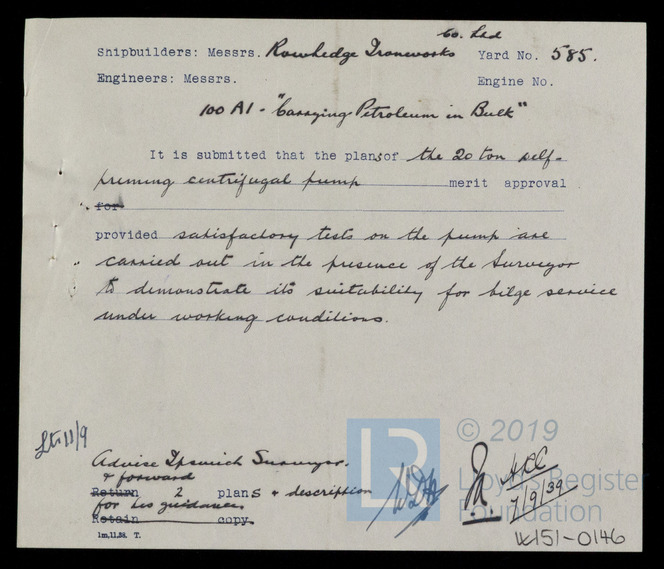 Co. Ltd
Shipbuilders: Messrs. Rowhedge Ironworks Yard No. 585.
Engineers: Messrs. Engine No.
100 A1 - "Carrying Petroleum in Bulk"
It is submitted that the plans of the 20 ton self-
priming centrifugal pump merit approval
for
provided satisfactory tests on the pump are
carried out in the presence of the Surveyor
to demonstrate its suitability for bilge service
under working conditions.
Ltr 11/9
Advise Ipswich Surveyor.
& forward
Return 2 plans & description
for his guidance
Retain copy.
1m,11,38. T.
7/9/39
© 2019
LR
Lloyd's Register
Foundation
W151-0146